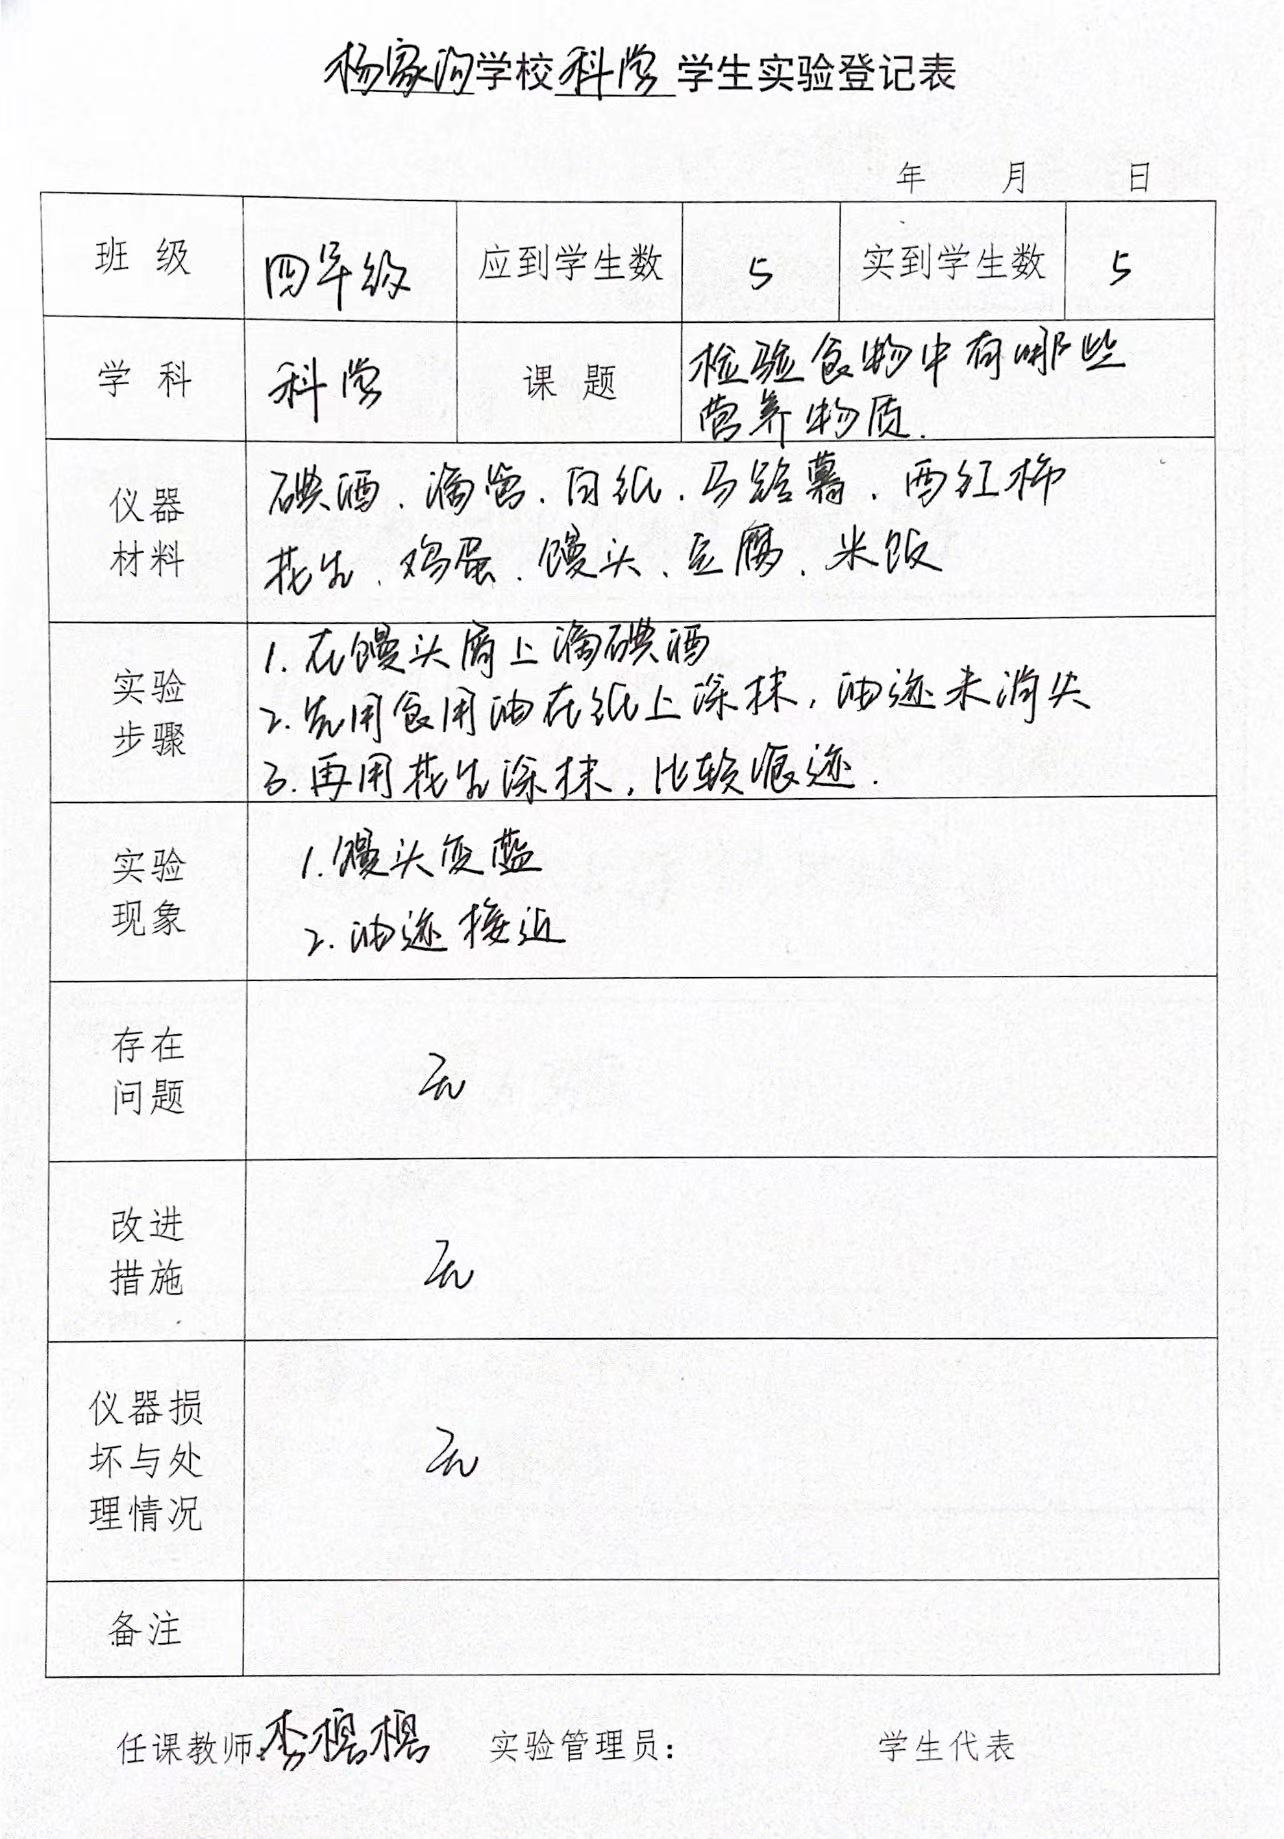 杨家沟学校科学学生实验登记表
年 月 日
班级 四年级 应到学生数 5 实到学生数 5
学科 科学 课题 检验食物中有哪些
营养物质.
仪器
材料
碘酒、滴管、白纸、马铃薯、西红柿
花生、鸡蛋、馒头、豆腐、米饭
实验
步骤
1. 在馒头屑上滴碘酒
2. 先用食用油在纸上涂抹,油迹未消失
3. 再用花生涂抹,比较痕迹.
实验
现象
1. 馒头变蓝
2. 油迹接近
存在
问题
无
改进
措施
无
仪器损
坏与处
理情况
无
备注
任课教师:李 实验管理员: 学生代表